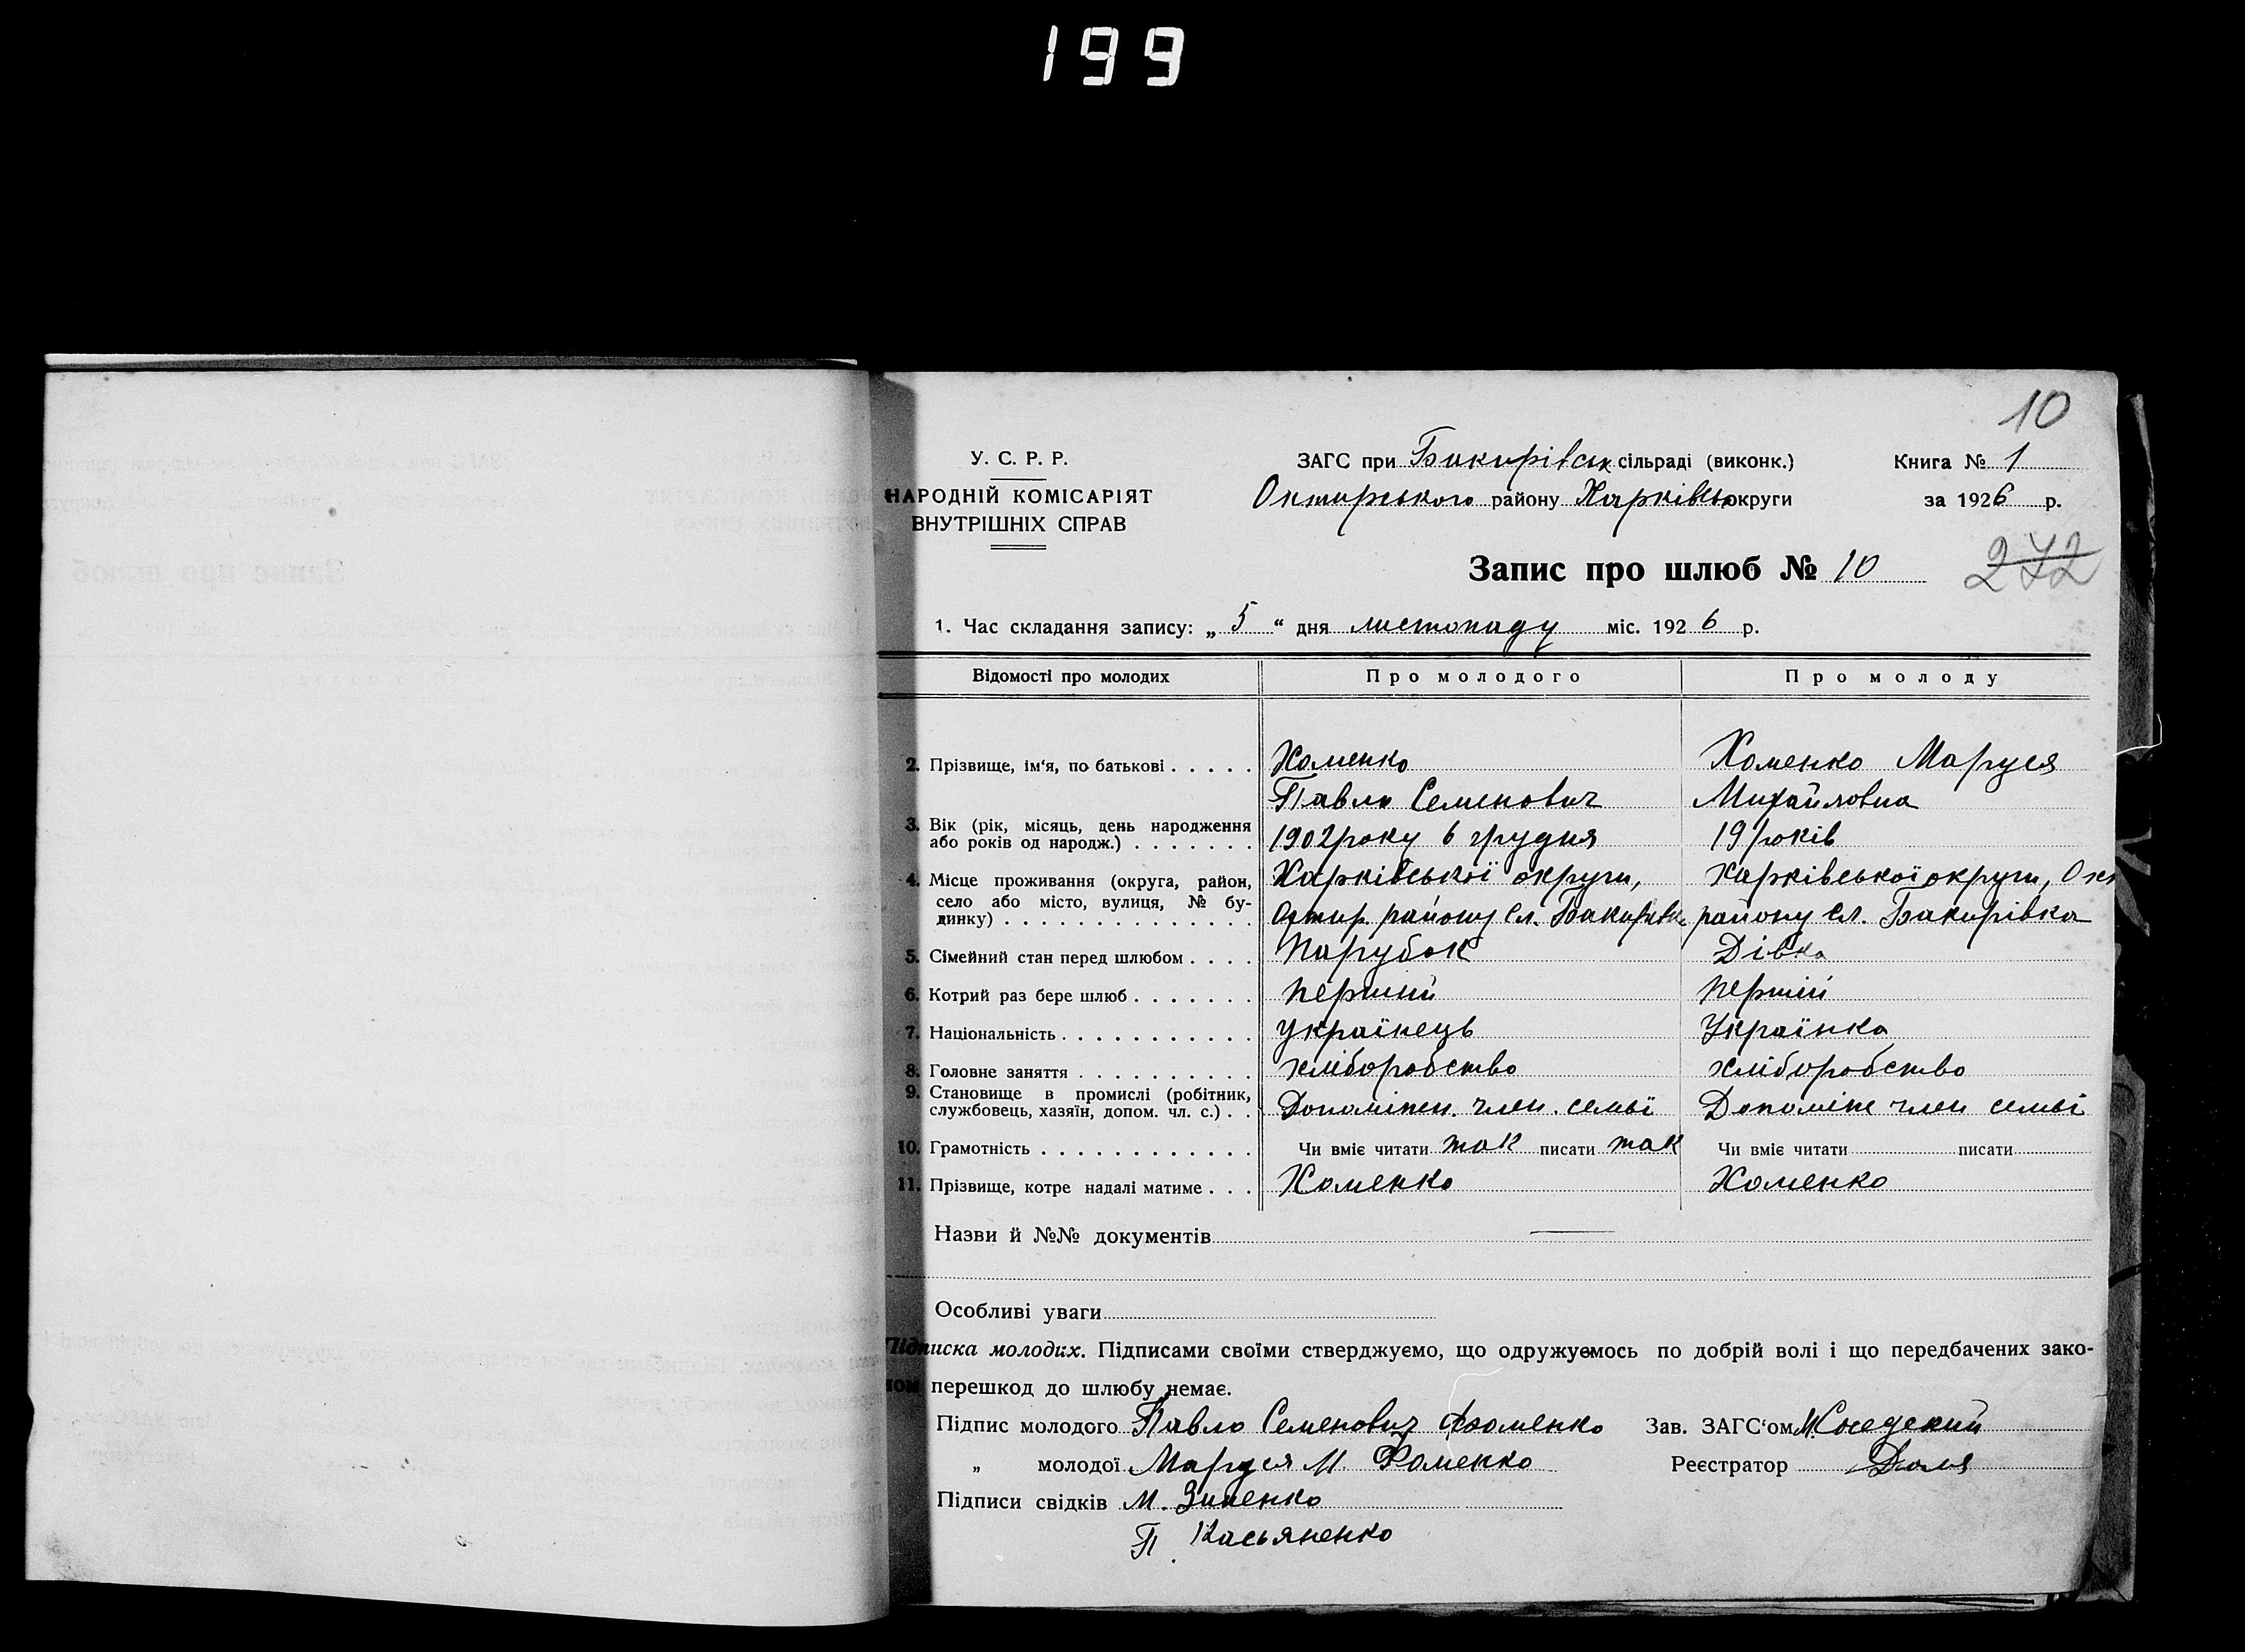 199
10
У. С. Р. Р.
НАРОДНІЙ КОМІСАРІЯТ
ВНУТРІШНІХ СПРАВ
ЗАГС при Бакирівськ сільраді (виконк.)
Охтирського району Харківськ округи
Книга № 1
за 1926 р.
272
Запис про шлюб № 10
1. Час складання запису: „ 5 “ дня листопаду міс. 1926 р.
Відомості про молодих Про молодого Про молоду
2. Прізвище, ім‘я, по батькові Хоменко Хоменко Маруся
Павло Семенович Михайловна
3. Вік (рік, місяць, день народження або років од народж.) 1902 року 6 грудня 19 років
4. Місце проживання (округа, район, Харківської округи, Харківської округи, Охт
село або місто, вулиця, № бу-
динку) Охтир. району Сл. Бакирівка району Сл. Бакирівка
5. Сімейний стан перед шлюбом Парубок Дівка
6. Котрий раз бере шлюб перший перший
7. Національність Українець Українка
8. Головне заняття хліборобство хліборобство
9. Становище в промислі (робітник,
службовець, хазяїн, допом. чл. с.) член семьї член семьі
10. Грамотність Чи вміє читати так писати так Чи вміє читати писати
11. Прізвище, котре надалі матиме Хоменко Хоменко
Назви й №№ документів —
Особливі уваги
Підписка молодих. Підписами своїми стверджуємо, що одружуємось по добрій волі і що передбачених зако-
ном перешкод до шлюбу немає.
Підпис молодого Павло Семенович Хоменко Зав. ЗАГС‘ом
„ молодої Маруся М. Фоменко Реєстратор Доля
Підписи свідків М. Зименко
П. Касьяненко